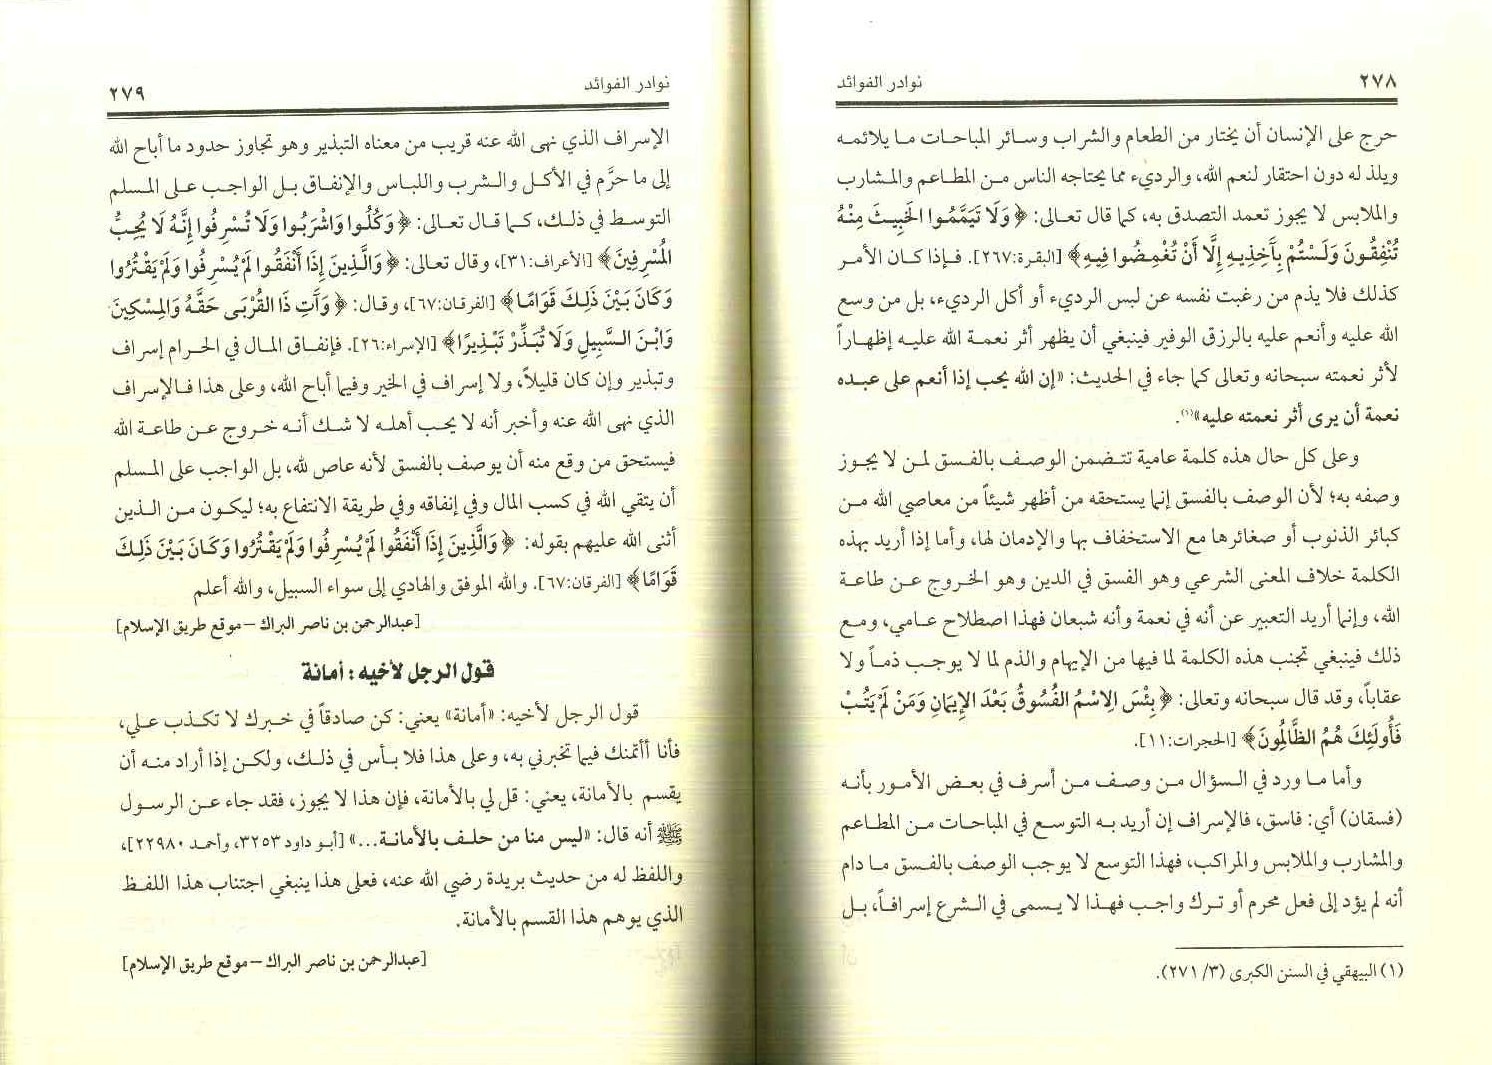 ٢٧٨
نوادر الفوائد
حرج على الإنسان أن يختار من الطعام والشراب وسائر المباحات ما يلائمه
ويلذ له دون احتقار لنعم الله، والرديء مما يحتاجه الناس من المطاعم والمشارب
والملابس لا يجوز تعمد التصدق به، كما قال تعالى: ﴿وَلَا تَيَمَّمُوا الْخَبِيثَ مِنْهُ
تُنْفِقُونَ وَلَسْتُمْ بِآخِذِيهِ إِلَّا أَنْ تُغْمِضُوا فِيهِ﴾ [البقرة:٢٦٧]. فإذا كان الأمر
كذلك فلا يذم من رغبت نفسه عن لبس الرديء أو أكل الرديء، بل من وسع
الله عليه وأنعم عليه بالرزق الوفير فينبغي أن يظهر أثر نعمة الله عليه إظهاراً
لأثر نعمته سبحانه وتعالى كما جاء في الحديث: «إن الله يحب إذا أنعم على عبده
نعمة أن يرى أثر نعمته عليه»(١).
وعلى كل حال هذه كلمة عامية تتضمن الوصف بالفسق لمن لا يجوز
وصفه به؛ لأن الوصف بالفسق إنما يستحقه من أظهر شيئاً من معاصي الله من
كبائر الذنوب أو صغائرها مع الاستخفاف بها والإدمان لها، وأما إذا أريد بهذه
الكلمة خلاف المعنى الشرعي وهو الفسق في الدين وهو الخروج عن طاعة
الله، وإنما أريد التعبير عن أنه في نعمة وأنه شبعان فهذا اصطلاح عامي، ومع
ذلك فينبغي تجنب هذه الكلمة لما فيها من الإيهام والذم لما لا يوجب ذماً ولا
عقاباً، وقد قال سبحانه وتعالى: ﴿بِئْسَ الِاسْمُ الْفُسُوقُ بَعْدَ الْإِيمَانِ وَمَنْ لَمْ يَتُبْ
فَأُولَئِكَ هُمُ الظَّالِمُونَ﴾ [الحجرات:١١].
وأما ما ورد في السؤال من وصف من أسرف في بعض الأمور بأنه
(فسقان) أي: فاسق، فالإسراف إن أريد به التوسع في المباحات من المطاعم
والمشارب والملابس والمراكب، فهذا التوسع لا يوجب الوصف بالفسق ما دام
أنه لم يؤد إلى فعل محرم أو ترك واجب فهذا لا يسمى في الشرع إسرافاً، بل
(١) البيهقي في السنن الكبرى (٣/ ٢٧١).
نوادر الفوائد
٢٧٩
الإسراف الذي نهى الله عنه قريب من معناه التبذير وهو تجاوز حدود ما أباح الله
إلى ما حرَّم في الأكل والشرب واللباس والإنفاق بل الواجب على المسلم
التوسط في ذلك، كما قال تعالى: ﴿وَكُلُوا وَاشْرَبُوا وَلَا تُسْرِفُوا إِنَّهُ لَا يُحِبُّ
الْمُسْرِفِينَ﴾ [الأعراف:٣١]، وقال تعالى: ﴿وَالَّذِينَ إِذَا أَنْفَقُوا لَمْ يُسْرِفُوا وَلَمْ يَقْتُرُوا
وَكَانَ بَيْنَ ذَلِكَ قَوَامًا﴾ [الفرقان:٦٧]، وقال: ﴿وَآتِ ذَا الْقُرْبَى حَقَّهُ وَالْمِسْكِينَ
وَابْنَ السَّبِيلِ وَلَا تُبَذِّرْ تَبْذِيرًا﴾ [الإسراء:٢٦]. فإنفاق المال في الحرام إسراف
وتبذير وإن كان قليلاً، ولا إسراف في الخير وفيما أباح الله، وعلى هذا فالإسراف
الذي نهى الله عنه وأخبر أنه لا يحب أهله لا شك أنه خروج عن طاعة الله
فيستحق من وقع منه أن يوصف بالفسق لأنه عاص لله، بل الواجب على المسلم
أن يتقي الله في كسب المال وفي إنفاقه وفي طريقة الانتفاع به؛ ليكون من الذين
أثنى الله عليهم بقوله: ﴿وَالَّذِينَ إِذَا أَنْفَقُوا لَمْ يُسْرِفُوا وَلَمْ يَقْتُرُوا وَكَانَ بَيْنَ ذَلِكَ
قَوَامًا﴾ [الفرقان:٦٧]. والله الموفق والهادي إلى سواء السبيل، والله أعلم
[عبدالرحمن بن ناصر البراك – موقع طريق الإسلام]
قول الرجل لأخيه: أمانة
قول الرجل لأخيه: «أمانة» يعني: كن صادقاً في خبرك لا تكذب علي،
فأنا أأتمنك فيما تخبرني به، وعلى هذا فلا بأس في ذلك، ولكن إذا أراد منه أن
يقسم بالأمانة، يعني: قل لي بالأمانة، فإن هذا لا يجوز، فقد جاء عن الرسول
ﷺ أنه قال: «ليس منا من حلف بالأمانة...» [أبو داود ٣٢٥٣، وأحمد ٢٢٩٨٠]،
واللفظ له من حديث بريدة رضي الله عنه، فعلى هذا ينبغي اجتناب هذا اللفظ
الذي يوهم هذا القسم بالأمانة.
[عبدالرحمن بن ناصر البراك – موقع طريق الإسلام]